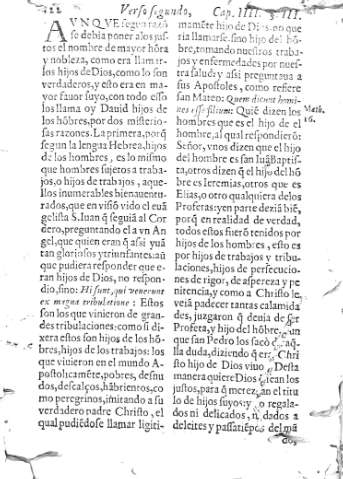 422 Verso segundo, Cap. IIII. §. III.
AVNQVE segun razõ
se debia poner a los jus-
tos el nombre de mayor hõra
y nobleza, como era llamar-
los hijos de Dios, como lo son
verdaderos, y esto era en ma-
yor fauor suyo, con todo esso
los llama oy Dauid hijos de
los hõbres, por dos misterio-
sas razones. La primera, porq̃
segun la lengua Hebrea, hijos
de los hombres, es lo mismo
que hombres sujetos a traba-
jos, o hijos de trabajos, aque-
llos inumerables bienauentu-
rados, que en visiõ vido el eua
gelista S. Iuan q̃ seguiã al Cor
dero, preguntando el a vn An
gel, que quien eran q̃ assi yuã
tan gloriosos y triunfantes: aũ
que pudiera responder que e-
ran hijos de Dios, no respon-
dio, sino: Hi sunt, qui venerunt
ex magna tribulatione: Estos
son los que vinieron de gran-
des tribulaciones: como si di-
xera estos son hijos de los hõ-
bres, hijos de los trabajos: los
que vivieron en el mundo A-
postolicamẽte, pobres, desnu
dos, descalços, hãbrientos, co
mo peregrinos, imitando a su
verdadero padre Christo, el
qual pudiẽdose llamar ligiti-
mamẽte hijo de Dios, no que
ria llamarse, sino hijo del hõ-
bre, tomando nuestros traba-
jos y enfermedades por nues-
tra salud: y assi preguntaua a
sus Apostoles, como refiere
san Mateo: Quem dicunt homi-
nes esse filium: Quiẽ dizen los
hombres que es el hijo de el
hombre, al qual respondierõ:
Señor, vnos dizen que el hijo
del hombre es san Iuã Baptis-
ta, otros dizen q̃ el hijo del hõ
bre es Ieremias, otros que es
Elias, o otro qualquiera delos
Profetas: y en parte deziã biẽ,
porq̃ en realidad de verdad,
todos estos fuerõ tenidos por
hijos de los hombres, esto es
por hijos de trabajos y tribu-
laciones, hijos de persecucio-
nes, de rigor, de aspereza y pe
nitencia, y como a Christo le
veiã padecer tantas calamida
des, juzgaron q̃ deuia de ser
Profeta, y hijo del hõbre, aun
que san Pedro los sacò de aq̃-
lla duda, diziendo q̃ era Chri
sto hijo de Dios viuo. Desta
manera quiere Dios los
justos, para q̃ merezcan el titu
lo de hijos suyos: y o regala-
dos ni delicados, ni dados a
deleites y passatiẽpos del mũ
do,
Math.
16.